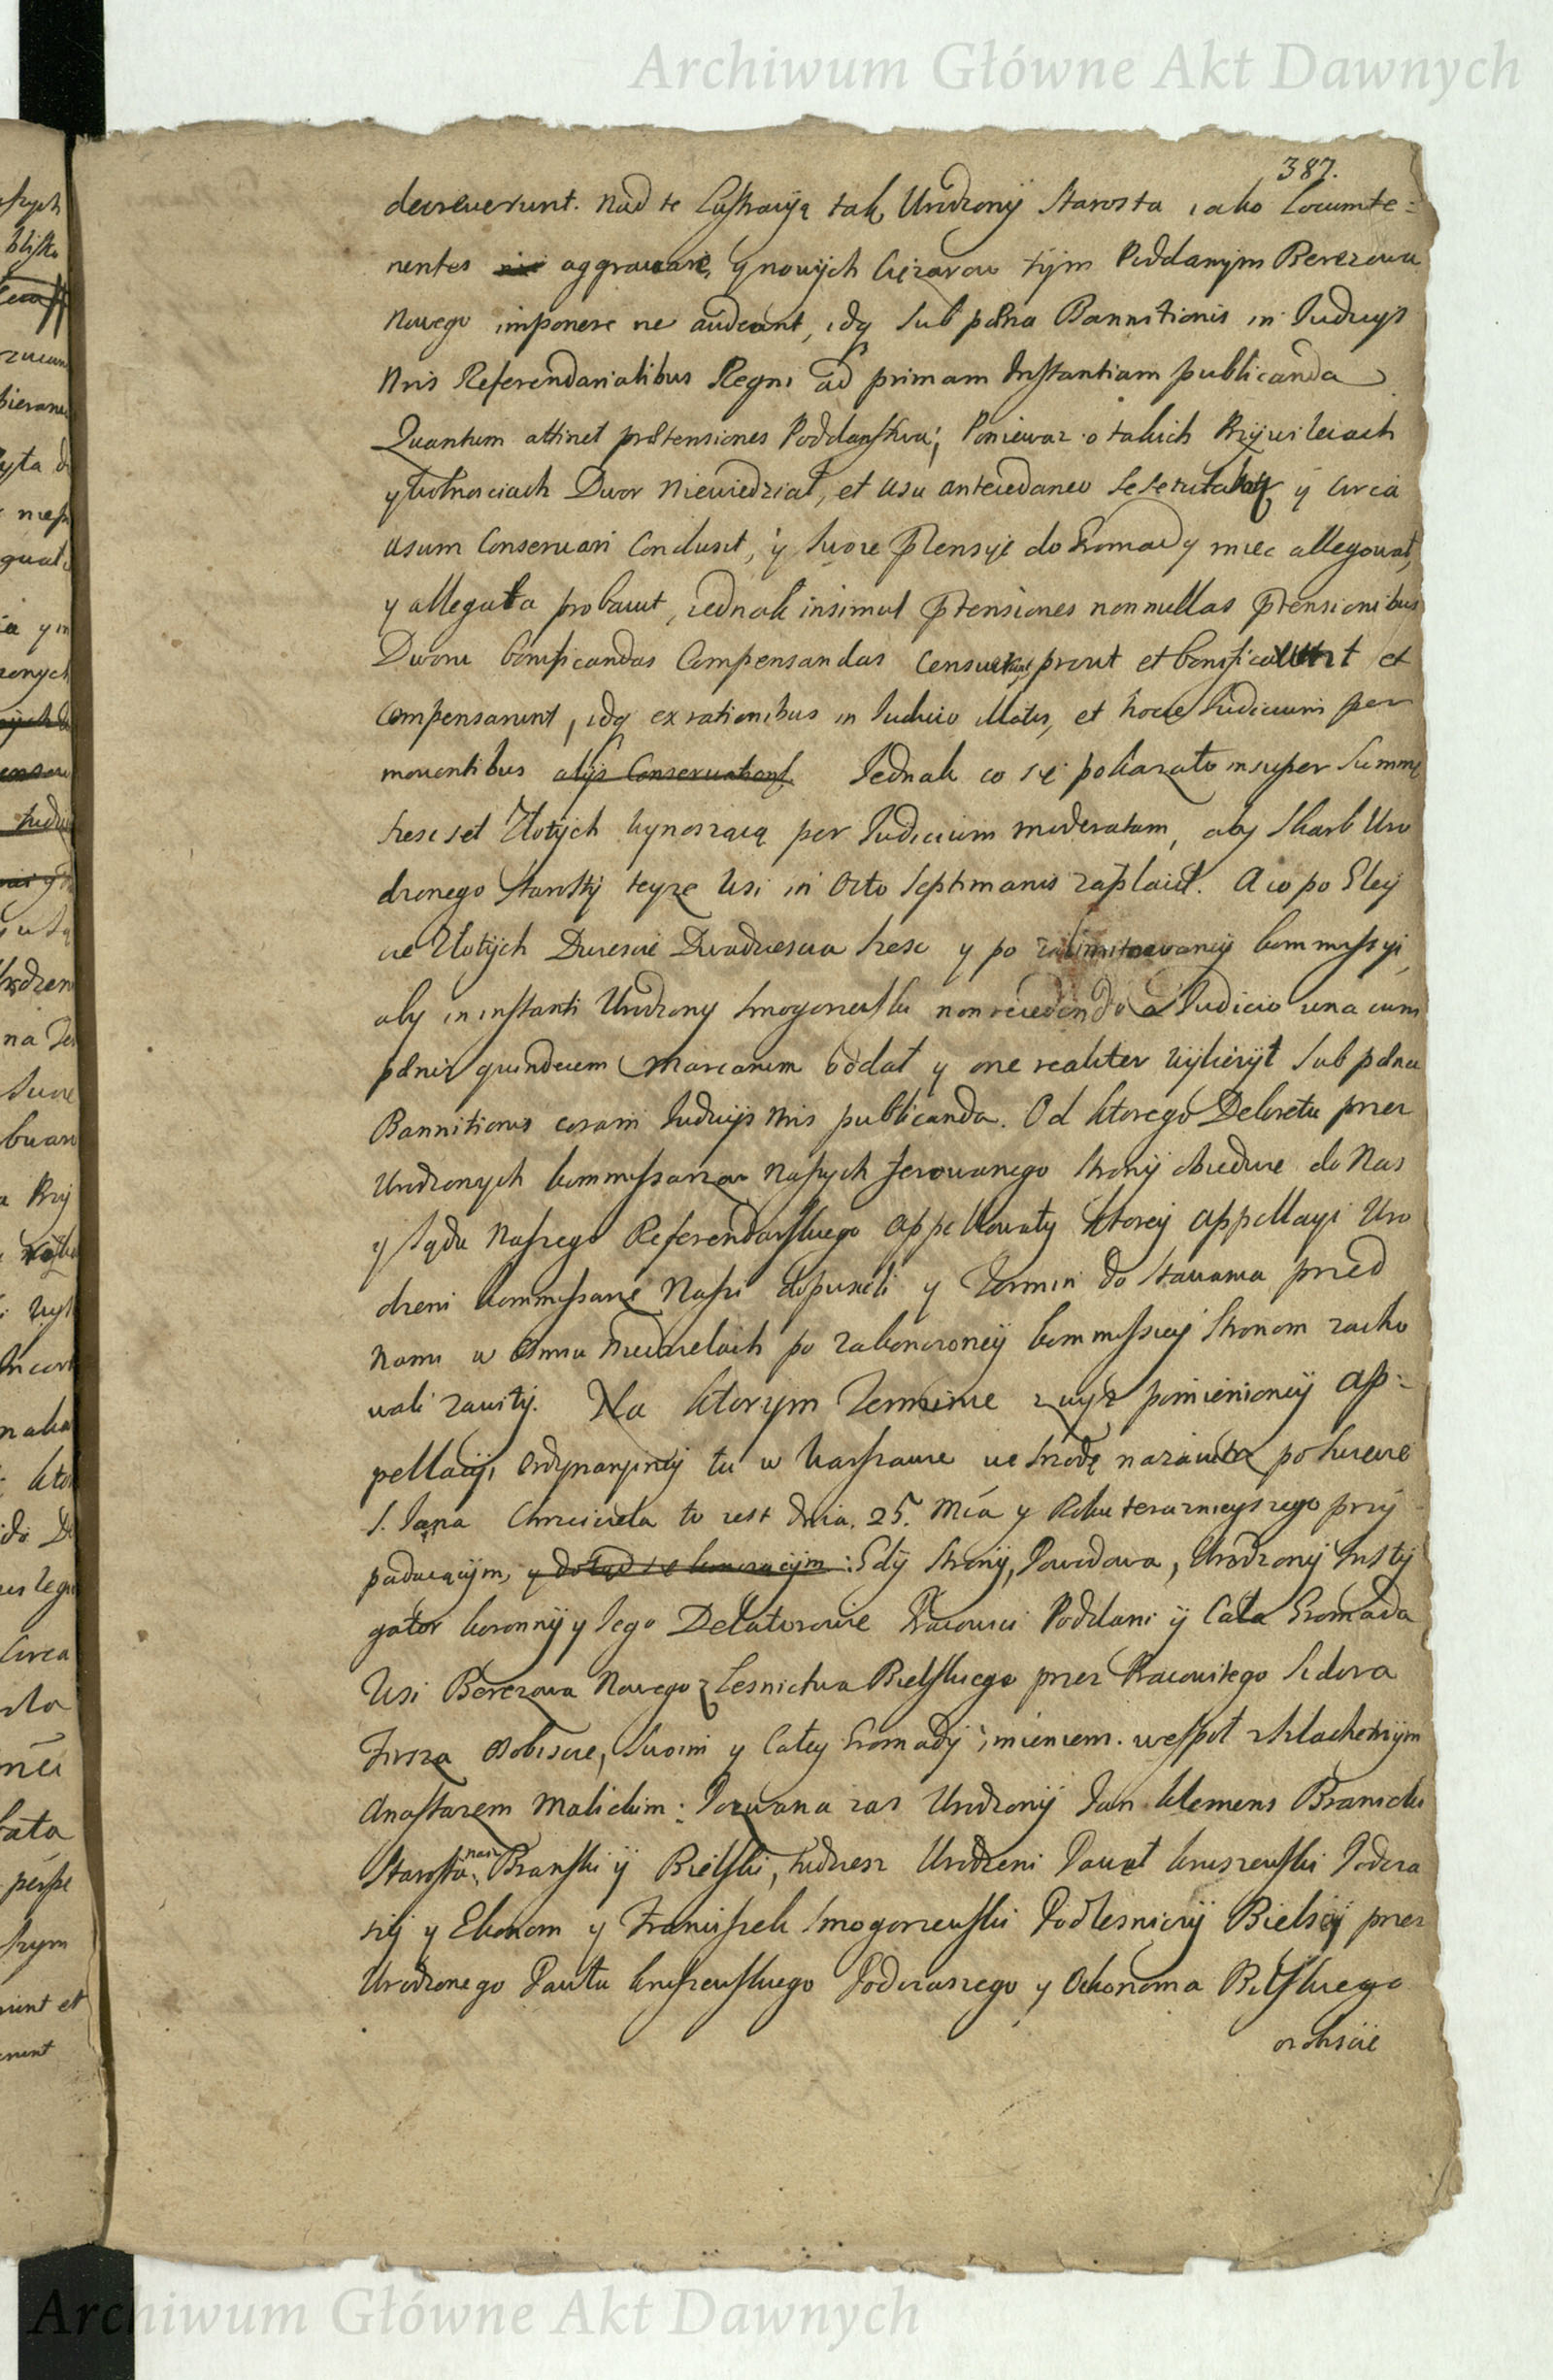 Archiwum Główne Akt Dawnych
387.
decreverunt. Nad te Lustracyą tak Urodzony Starosta iako Locumte=
nentes aggravare, y nowych Cięzarow tym Poddanym Berezowa
Nowego imponere ne audeant, idq sub pæna Bannitionis in Iudicys
Nris Referendarialibus Regni ad primam Instantiam publicanda
Quantum attinet prætensiones Poddanstwa; Poniewaz o takich Przywileiach
y wolnosciach Dwor niewiedział, et usu antecedaneo se y circa
usum Conservari Conclusit, y swoie Ptensye do Gromady miec allegował,
y allegata probavit, iednak insimul Ptensiones nonnullas Ptensionibus
Dworu bonificandas Compensandas prout et et
compensarunt, idq ex rationibus in Iudicio illatis, et hocce Iudicium per
moventibus alys Conservationi. Iednak co się pokazało insuper Summę
szescset Złotych wynoszącą per Iudicium moderatam, aby Skarb Uro
dzonego Starosty teyze Wsi in Octo Septimanis zapłacił. A co po Eley
ie Złotych Dwiescie Dwadziescia szesc y po zalimitowaney kommissyi,
aby in instanti Urodzony Smogorzewski non recedendo a Iudicio una cum
pænis quindecim Marcarum oddał y one realiter wyliczył sub pæna
Bannitionis coram Iudicys Nris publicanda. Od ktorego Dekretu przez
Urodzonych kommissarzow Naszych ferowanego Strony obiedwie do Nas
y Sądu Naszego Referendarskiego appellowały ktorey appellacyi Uro
dzeni kommissarze Nasi dopuscili y Termin do stawania przed
Nami w Osmiu Niedzielach po zakonczoney kommissiey Stronom zacho
wali zawity. Na ktorym Terminie z wyz pomienioney ap=
pellacyi, Ordynaryiney tu w Warszawie we Srzodę nazaiutrz po Swiecie
S. Iana Chrzciciela to iest dnia. 25. Mca y Roku teraznieyszego przy
padaiącym, y dotąd się konczącym: Gdy Strony, Powodowa, Urodzony Insty
gator koronny y Iego Delatorowie Pracowici Poddani y Cała Gromada
Wsi Berezowa Nowego z Lesnictwa Bielskiego przez Pracowitego Sidora
osobiscie, Swoim y Całey Gromady imieniem. wespoł z Szlachetnym
Anastazem Malickim: Pozwana zas Urodzony Ian Klemens Branicki
Starosta nasz Branski y Bielski, tudziesz Urodzeni Paweł kruszewski Podcza
szy y Ekonom y Franciszek Smogorzewski Podlesniczy Bielscy przez
Urodzonego Pawła kruszewskiego Podczaszego y Oekonoma Bielskiego
osobiscie
Archiwum Główne Akt Dawnych